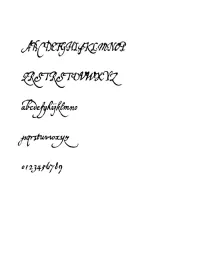 ABCDEFGHIJKLMNOP
QRSTRSTUVWXYZ
abcdefghijklmno
pqrstuvwxyz
0123456789